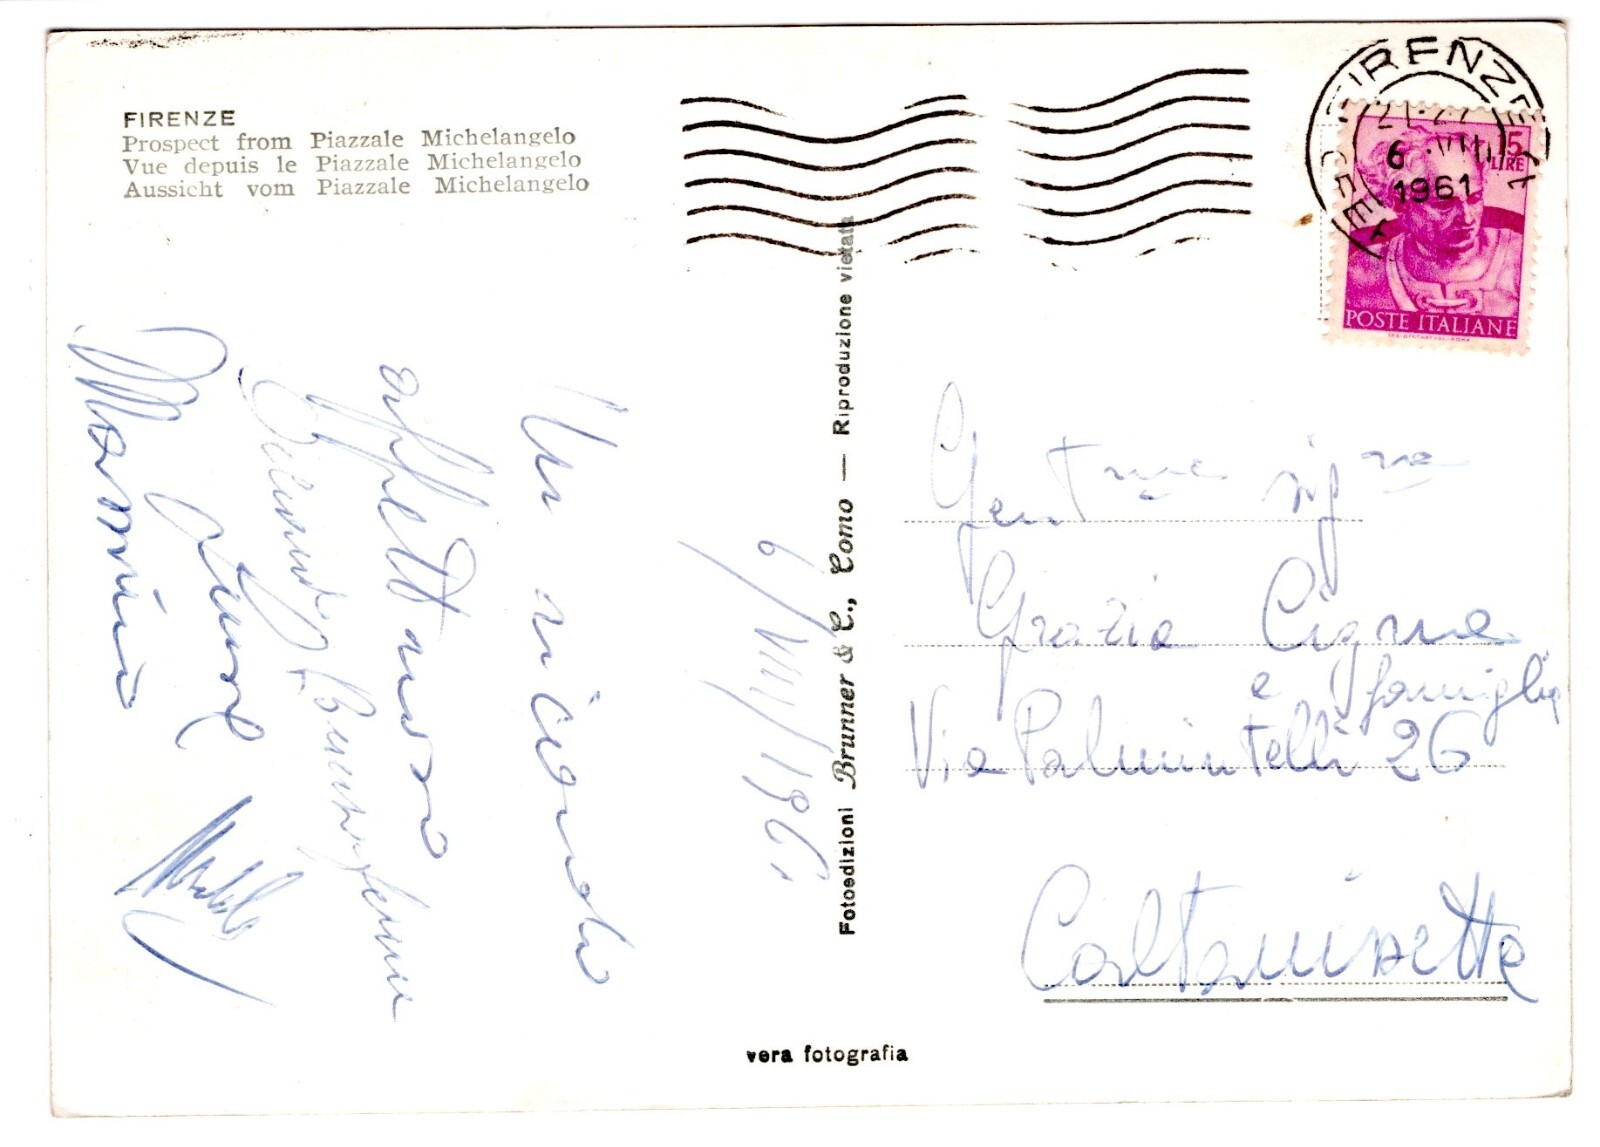 FIRENZE
Prospect from Piazzale Michelangelo
Vue depuis le Piazzale Michelangelo
Aussicht vom Piazzale Michelangelo
FIRENZE
21-22
6 VIII
1961
15
LIRE
POSTE ITALIANE
6/VIII/1961
Un ricordo
affettuoso
Fotoedizioni Brunner & C., Como — Riproduzione vietata
Gent.me sig.re
Grazia Cigna
e famiglia
Via Palmintelli 26
Caltanissetta
vera fotografia